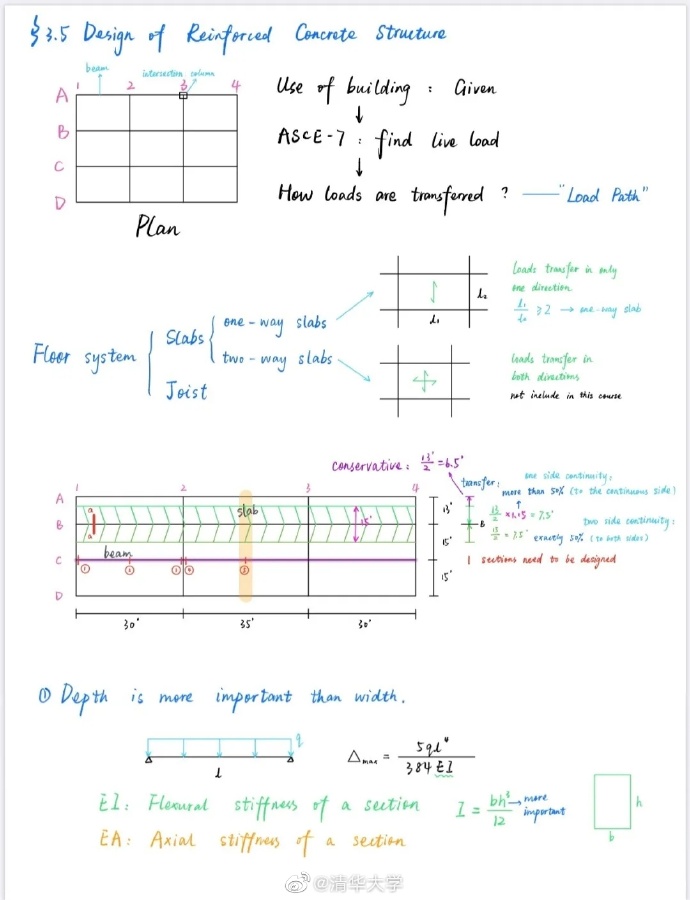 § 3.5 Design of Reinforced Concrete Structure
beam
intersection column
1 2 3 4
A
B
C
D
Plan
Use of building : Given
↓
ASCE-7 : find live load
↓
How loads are transferred ? —— "Load Path"
Floor system
Slabs
one-way slabs
two-way slabs
Joist
l₁
l₂
Loads transfer in only
one direction
l₁/l₂ ≥ 2 → one-way slab
Loads transfer in
both directions
not include in this course
conservative: 13'/2 = 6.5'
1 2 3 4
A
B
C
D
a
a
slab
15'
beam
① ② ① ②
13'
15'
15'
30' 35' 30'
transfer:
B
one side continuity:
more than 50% (to the continuous side)
13/2 × 1.15 = 7.5'
two side continuity:
15/2 = 7.5' exactly 50% (to both sides)
| sections need to be designed
① Depth is more important than width.
q
l
Δmax = 5ql⁴/384EI
EI: Flexural stiffness of a section
EA: Axial stiffness of a section
I = bh³/12 → more
important
h
b
@清华大学